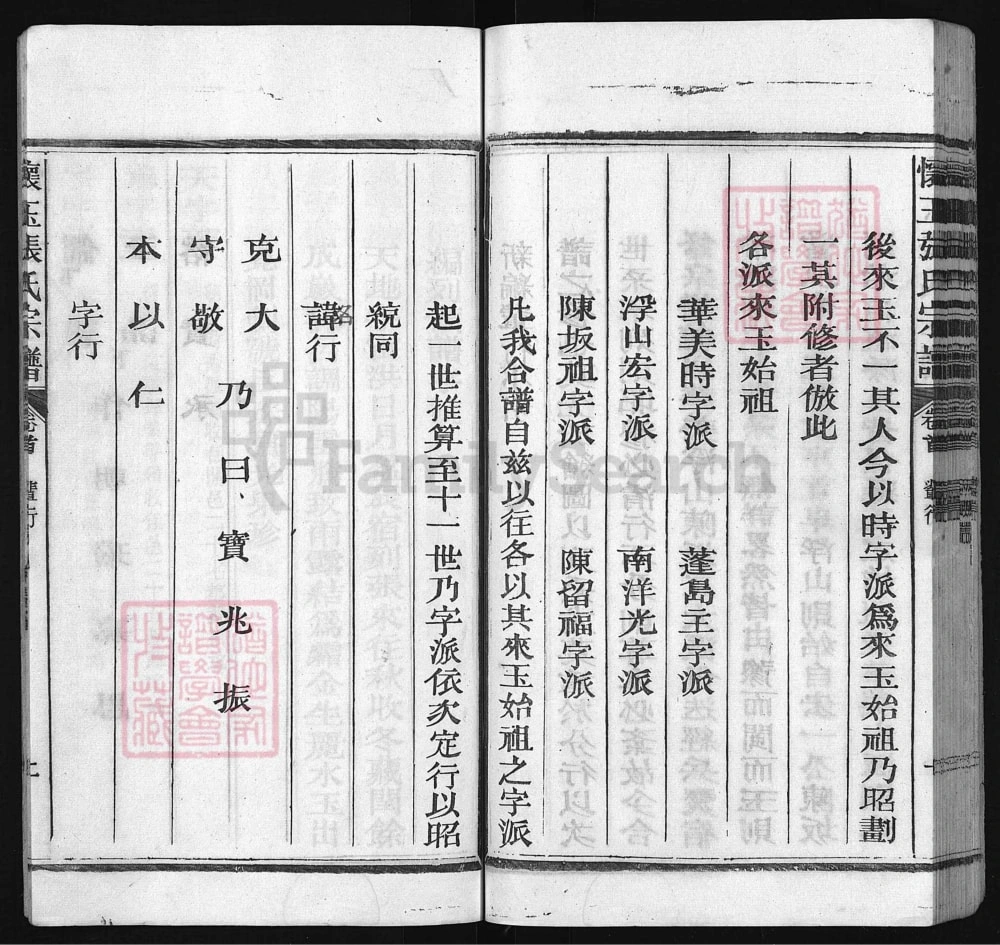 後來玉不一其人今以時字派爲來玉始祖乃昭劃
一其附修者倣此
各派來玉始祖
華美時字派 蓬島主字派
浮山宏字派 南洋光字派
陳坂祖字派 陳留福字派
凡我合譜自兹以往各以其來玉始祖之字派
起一世推算至十一世乃字派依次定行以昭
統同
諱行
克大 乃曰寶兆振
守敬
本以仁
字行
懷玉張氏宗譜 卷首 輩行
FamilySearch